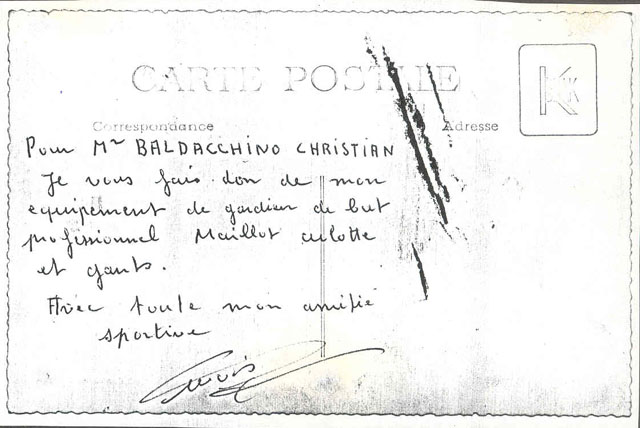 CARTE POSTALE
Correspondance
Adresse
K
Pour Mr BALDACCHINO CHRISTIAN
Je vous fais don de mon
equipement de gardien de but
professionnel Maillot culotte
et gants.
Avec toute mon amitie
sportive